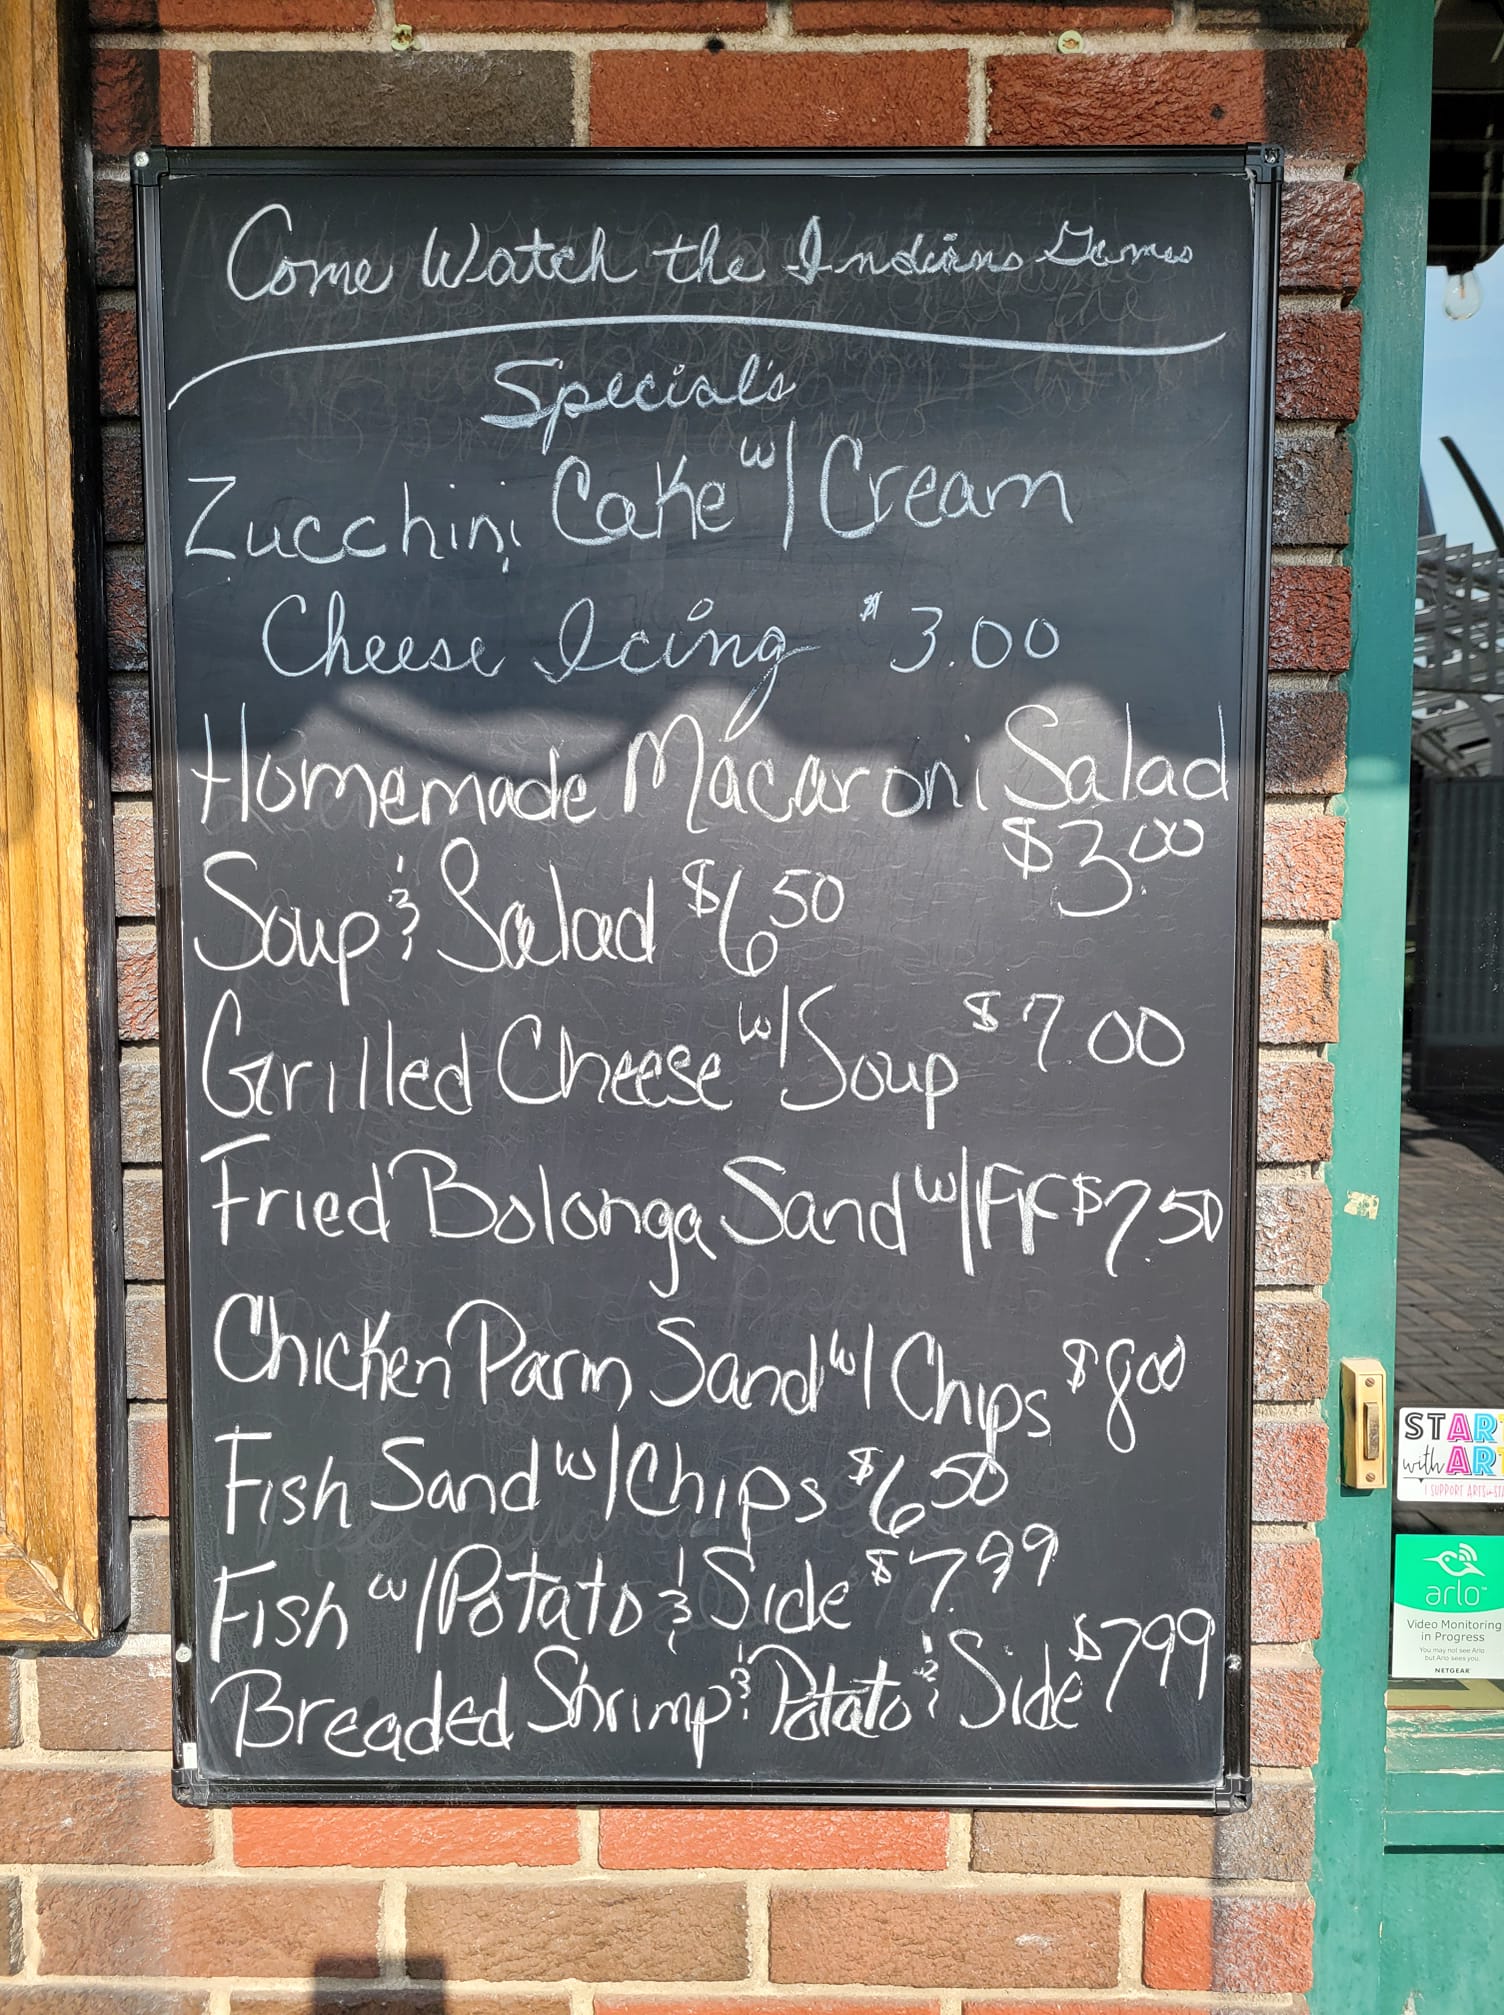 Come Watch the Indians Games
Special's
Zucchini Cake w/ Cream
Cheese Icing $3.00
Homemade Macaroni Salad
$3.00
Soup & Salad $6.50
Grilled Cheese w/ Soup $7.00
Fried Bolonga Sand w/ FF $7.50
Chicken Parm Sand w/ Chips $8.00
Fish Sand w/ Chips $6.50
Fish w/ Potato & Side $7.99
Breaded Shrimp & Potato & Side $7.99
STAR
with AR
I SUPPORT ARTS
arlo
Video Monitoring
in Progress
You may not see Arlo
but Arlo sees you.
NETGEAR